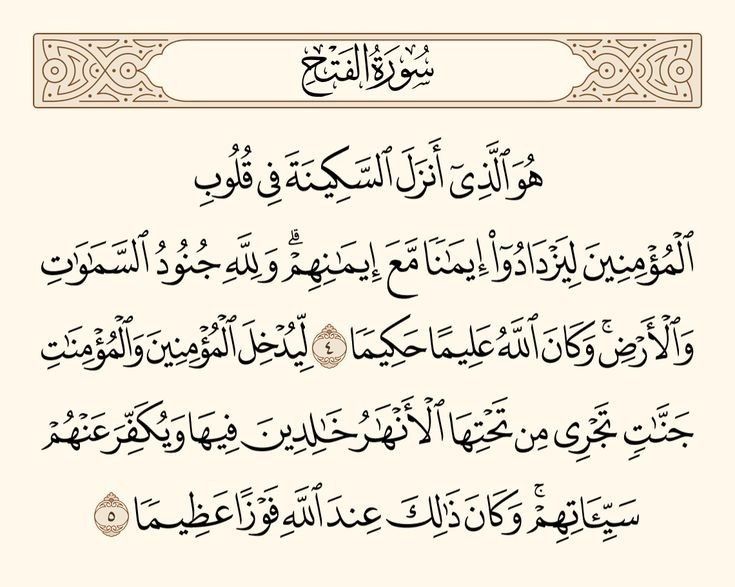 سُورَةُ الفَتْحِ
هُوَ ٱلَّذِىٓ أَنزَلَ ٱلسَّكِينَةَ فِى قُلُوبِ
ٱلْمُؤْمِنِينَ لِيَزْدَادُوٓا۟ إِيمَـٰنًا مَّعَ إِيمَـٰنِهِمْ ۗ وَلِلَّهِ جُنُودُ ٱلسَّمَـٰوَٰتِ
وَٱلْأَرْضِ ۚ وَكَانَ ٱللَّهُ عَلِيمًا حَكِيمًا ٤ لِّيُدْخِلَ ٱلْمُؤْمِنِينَ وَٱلْمُؤْمِنَـٰتِ
جَنَّـٰتٍ تَجْرِى مِن تَحْتِهَا ٱلْأَنْهَـٰرُ خَـٰلِدِينَ فِيهَا وَيُكَفِّرَ عَنْهُمْ
سَيِّـَٔاتِهِمْ ۚ وَكَانَ ذَٰلِكَ عِندَ ٱللَّهِ فَوْزًا عَظِيمًا ٥